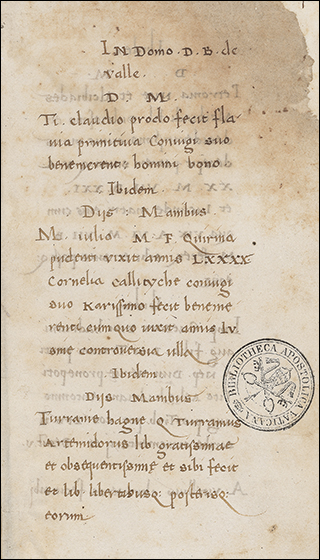 IN Domo . D. B. de
valle.
D. M.
TI. claudio proclo fecit fla
uia primitiua Coniugi suo
benemerenti homini bono
Ibidem
Dijs : Manibus
M. iulio M F Quirina
pudenti vixit annis LXXXX
Cornelia callityche coniugi
suo Karissimo fecit beneme
renti cum quo uixit annis LV
sine controuersia ulla
Ibidem
Dijs Manibus
Turranie hagne Q Turranius
Artemidorus lib gratissimae
et obsequentissime et sibi fecit
et lib libertabusq: posterisq:
eorum
BIBLIOTHECA APOSTOLICA VATICANA